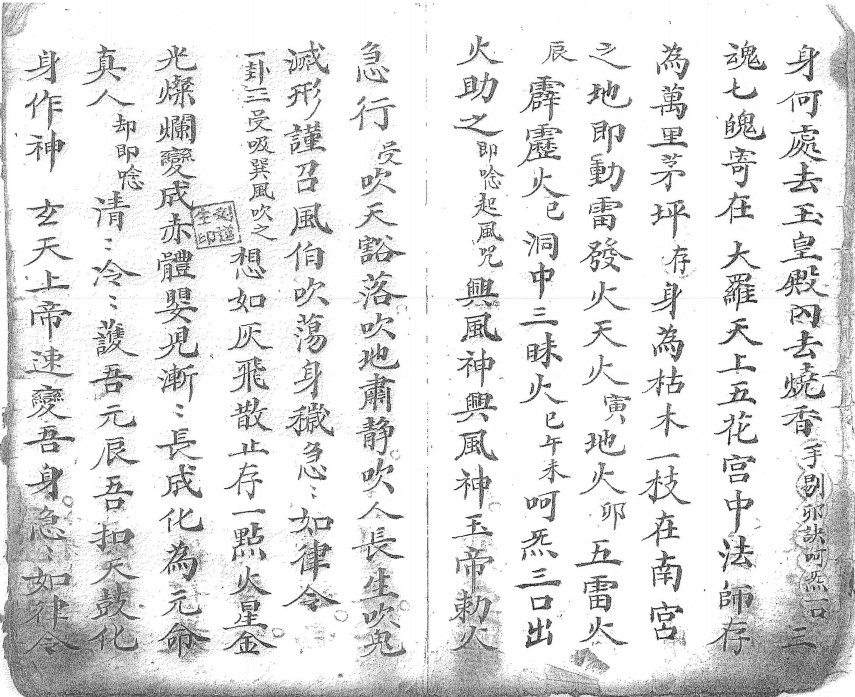 身何處去玉皇殿内去燒香手剔卯訣呵炁三口
魂七魄寄在大羅天上五花宫中法師存
為萬里茅坪存身為枯木一枝在南宮
之地即動雷發火天火寅地火卯五雷火
辰霹靂火巳洞中三昧火巳午未呵炁三口出
火助之即唸起風咒興風神興風神玉帝勅人
急行受吹天豁落吹地肅静吹人長生吹鬼
滅形謹召風伯吹蕩身穢急〻如律令
一卦三受吸巽風吹之想如灰飛散止存一點火星金
光燦爛變成赤體嬰児漸〻長成化為元命
真人却即唸清〻冷〻護吾元辰吾扣天鼓化
身作神玄天上帝速變吾身急〻如律令